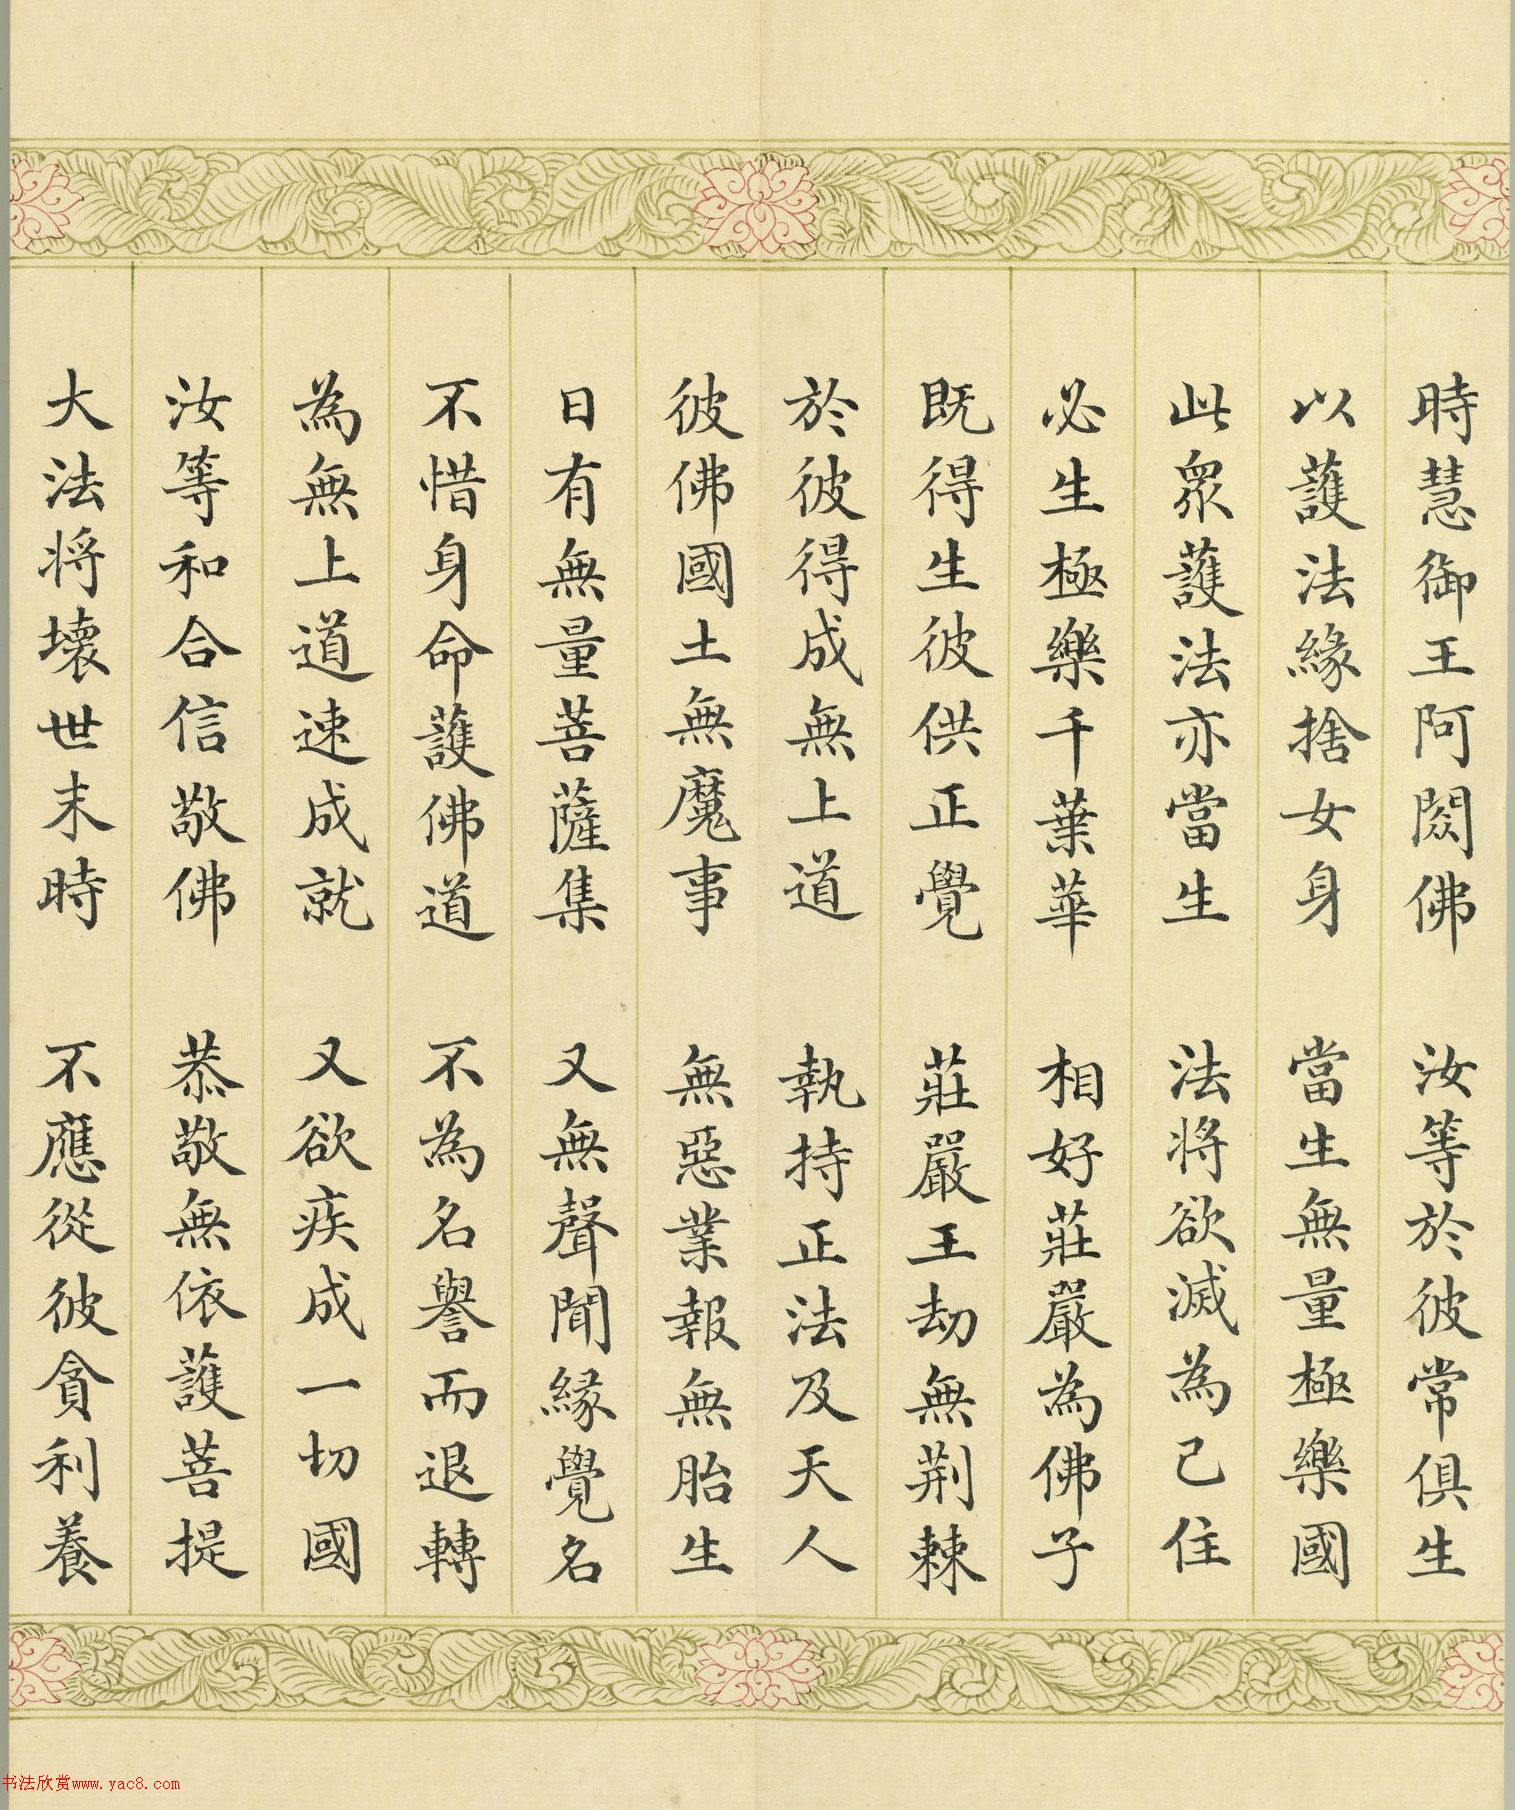 時慧御王阿閦佛　汝等於彼常俱生
以護法緣捨女身　當生無量極樂國
此眾護法亦當生　法將欲滅為已住
必生極樂千葉華　相好莊嚴為佛子
既得生彼供正覺　莊嚴王劫無荆棘
於彼得成無上道　執持正法及天人
彼佛國土無魔事　無惡業報無胎生
日有無量菩薩集　又無聲聞緣覺名
不惜身命護佛道　不為名譽而退轉
為無上道速成就　又欲疾成一切國
汝等和合信敬佛　恭敬無依護菩提
大法将壞世末時　不應從彼貪利養
书法欣赏www.yac8.com